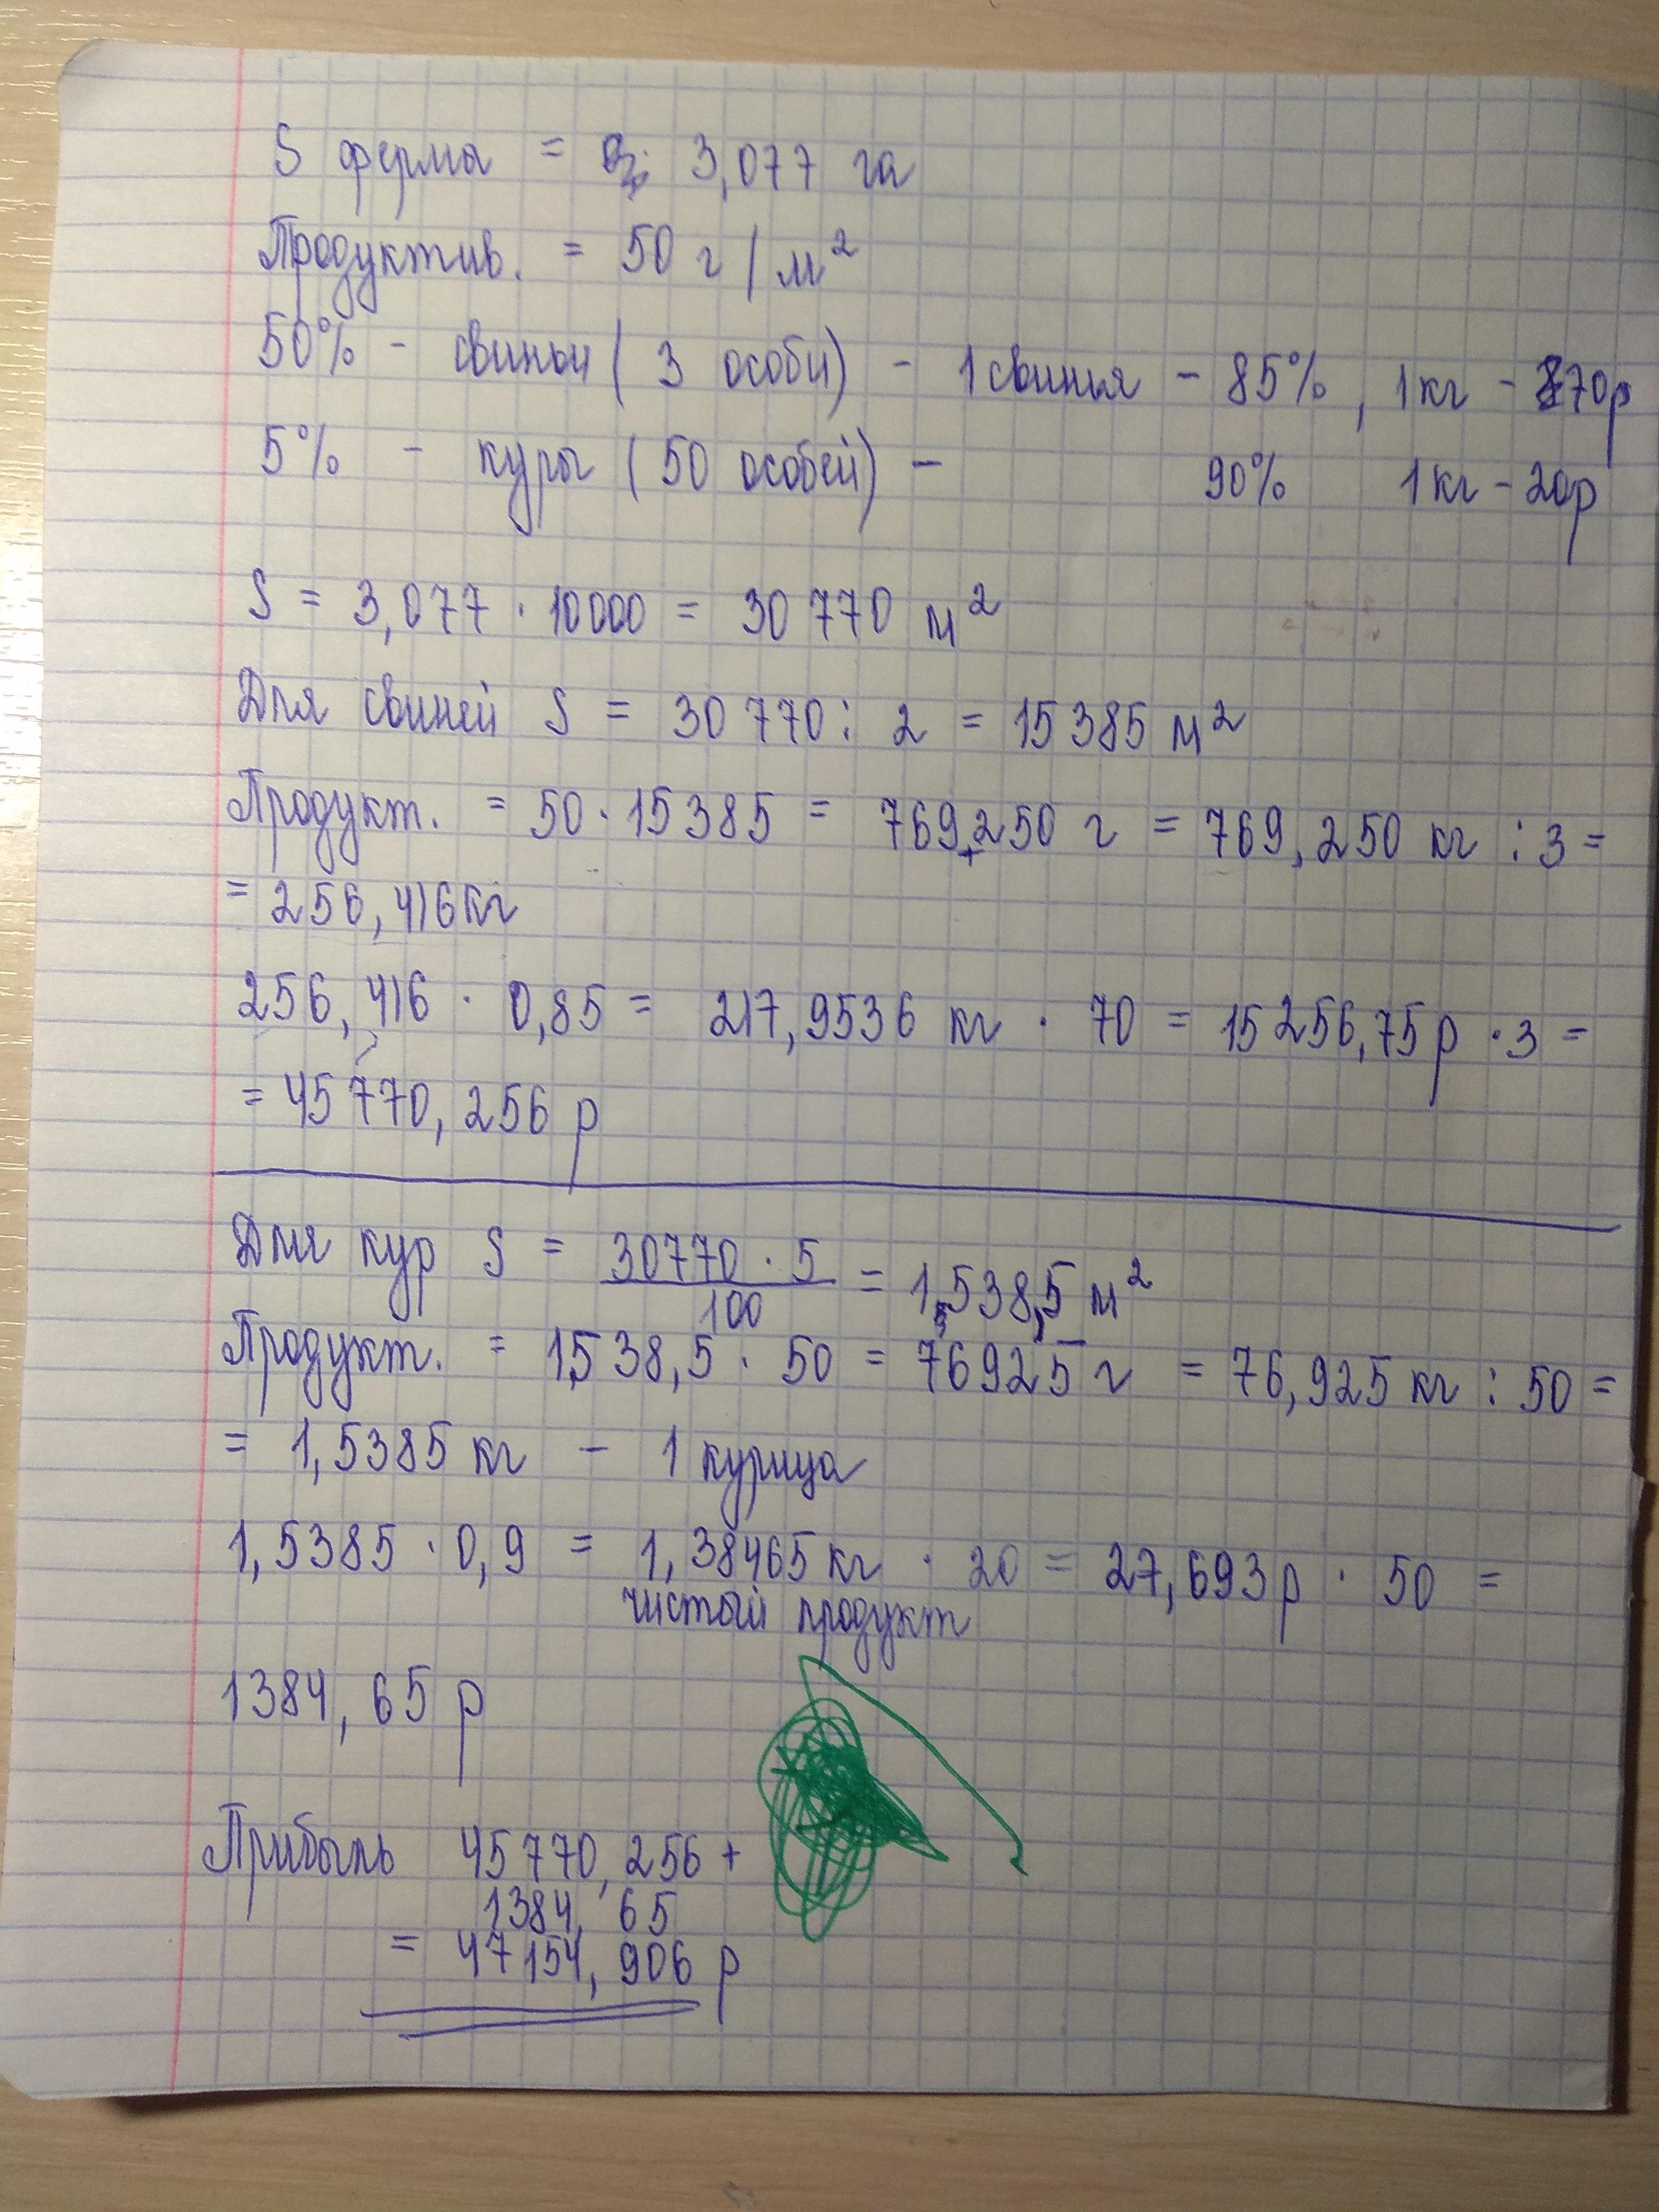 S ферма = 3,077 га
Продуктив. = 50 г/м²
50% - свиньи (3 особи) - 1 свинья - 85%, 1кг - 70р
5% - куры (50 особей) - 90% 1кг - 20р
S = 3,077 · 10000 = 30 770 м²
Для свиней S = 30 770 : 2 = 15 385 м²
Продукт. = 50 · 15 385 = 769250 г = 769,250 кг : 3 =
= 256,416кг
256,416 · 0,85 = 217,9536 кг · 70 = 15 256,75р · 3 =
= 45 770,256 р
Для кур S = 30770 · 5 / 100 = 1538,5 м²
Продукт. = 1538,5 · 50 = 76925 г = 76,925 кг : 50 =
= 1,5385 кг - 1 курица
1,5385 · 0,9 = 1,38465 кг · 20 = 27,693р · 50 =
чистый продукт
1384,65 р
Прибыль 45 770,256 +
1384,65
= 47 154,906 р